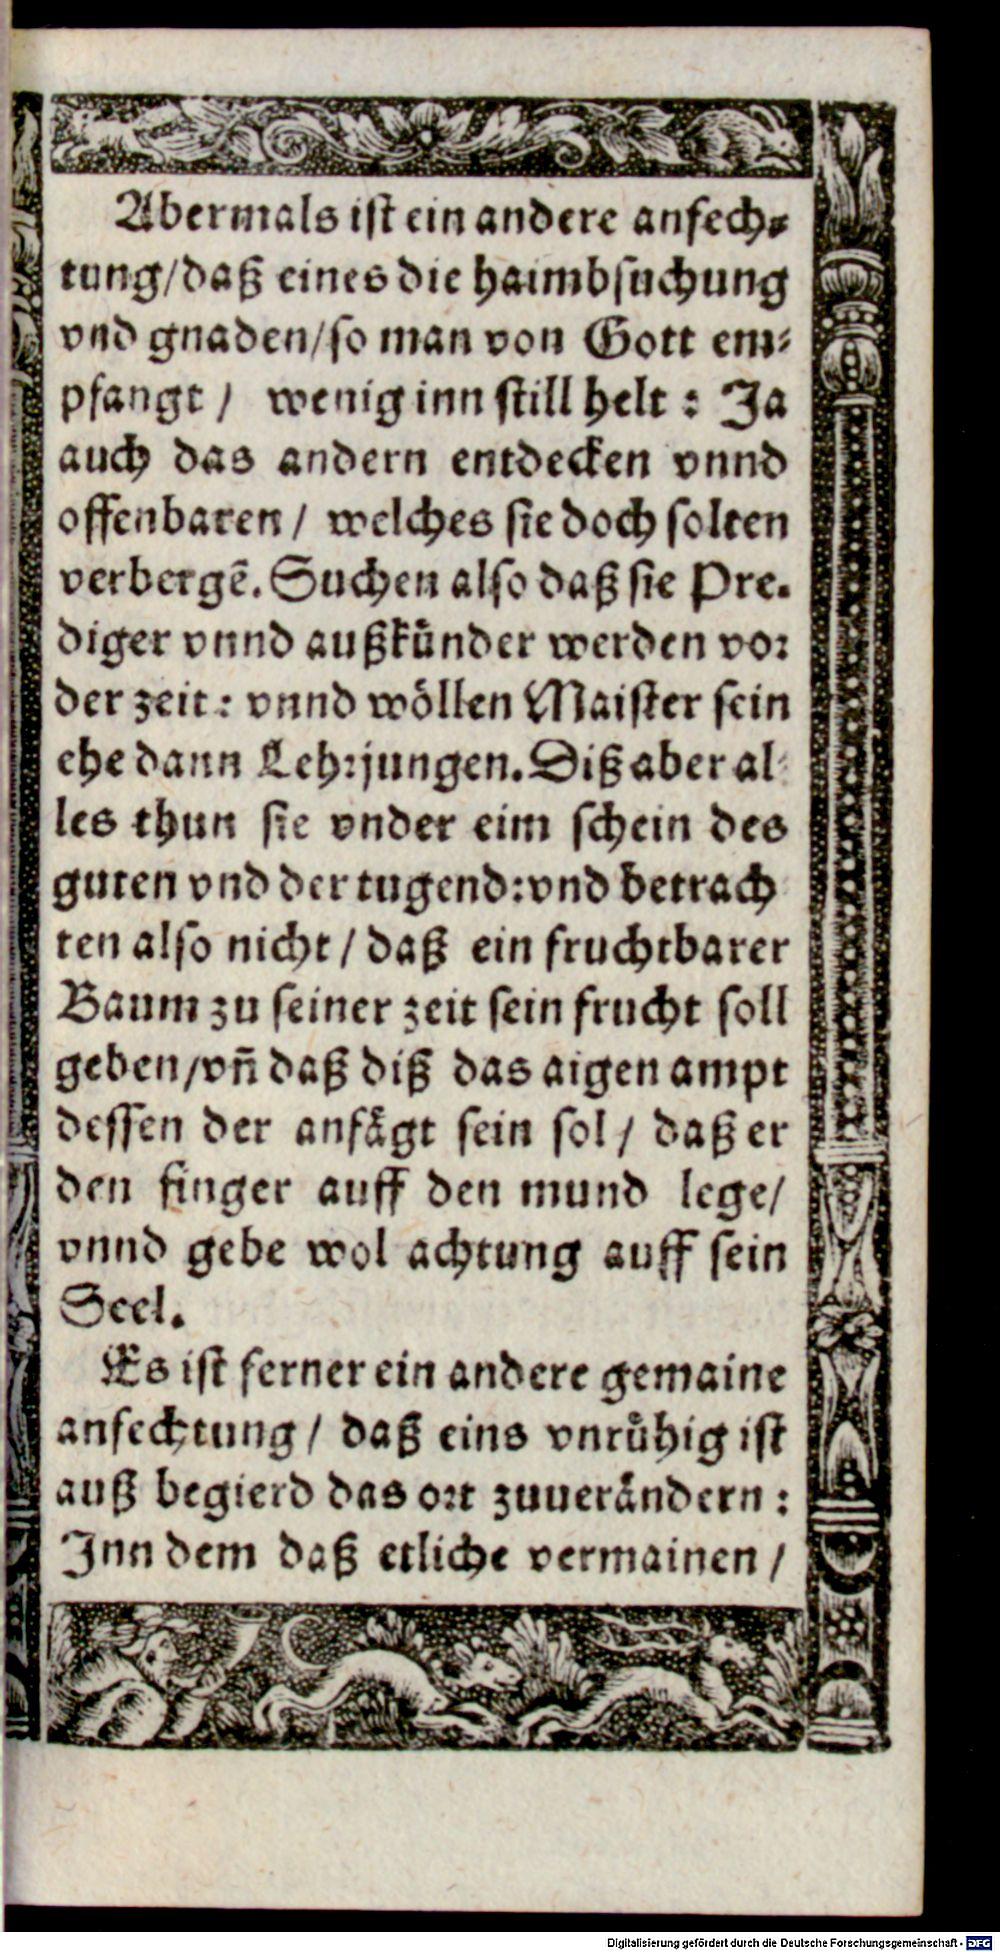 Abermals ist ein andere anfech⸗
tung/daß eines die haimbsuchung
vnd gnaden/so man von Gott em⸗
pfangt / wenig inn still helt : Ja
auch das andern entdecken vnnd
offenbaren / welches sie doch solten
verbergẽ. Suchen also daß sie Pre⸗
diger vnnd außkünder werden vor
der zeit : vnnd wöllen Maister sein
ehe dann Lehrjungen. Diß aber al⸗
les thun sie vnder eim schein des
guten vnd der tugend: vnd betrach
ten also nicht / daß ein fruchtbarer
Baum zu seiner zeit sein frucht soll
geben/vñ daß diß das aigen ampt
dessen der anfãgt sein sol / daß er
den finger auff den mund lege/
vnnd gebe wol achtung auff sein
Seel.
Es ist ferner ein andere gemaine
anfechtung / daß eins vnrůhig ist
auß begierd das ort zuuerändern :
Inn dem daß etliche vermainen /
Digitalisierung gefördert durch die Deutsche Forschungsgemeinschaft - DFG